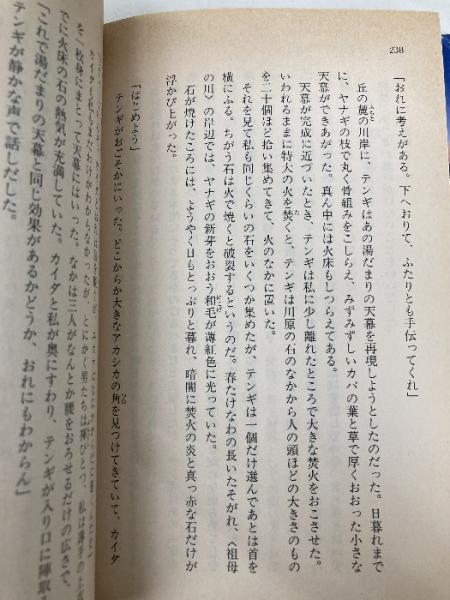 238
「おれに考えがある。下へおりて、ふたりとも手伝ってくれ」
丘の麓の川岸に、テンギはあの湯だまりの天幕を再現しようとしたのだった。日暮れまで
に、ヤナギの枝で丸く骨組みをこしらえ、みずみずしいカバの葉と草で厚くおおった小さな
天幕ができあがった。真ん中には火床もしつらえてある。
天幕が完成に近づいたとき、テンギは私に少し離れたところで大きな焚火をおこさせた。
いわれるままに特大の火を焚くと、テンギは川原の石のなかから人の頭ほどの大きさのもの
を二十個ほど拾い集めてきて、火のなかに置いた。
それを見て私も同じくらいの石をいくつか集めたが、テンギは一個だけ選んであとは首を
横にふる。ちがう石は火で焼くと破裂するというのだ。春たけなわの長いたそがれ、〈祖母
の川〉の岸辺では、ヤナギの新芽をおおう和毛が薄紅色に光っていた。
石が焼けたころには、ようやく日もとっぷりと暮れ、暗闇に焚火の炎と真っ赤な石だけが
浮かび上がった。
「はじめよう」
テンギがおごそかにいった。どこからか大きなアカシカの角を見つけてきていて、カイダ
男たちは裸ひとつ、私は薄手の上
を一枚身にまとって天幕にはいった。なかは三人がなんとか腰をおろせるだけの広さで、
でに火床の石の熱気が充満していた。カイダと私が奥にすわり、テンギが入り口に陣取る
「これで湯だまりの天幕と同じ効果があるかどうか、おれにもわからん」
テンギが静かな声で話しだした。